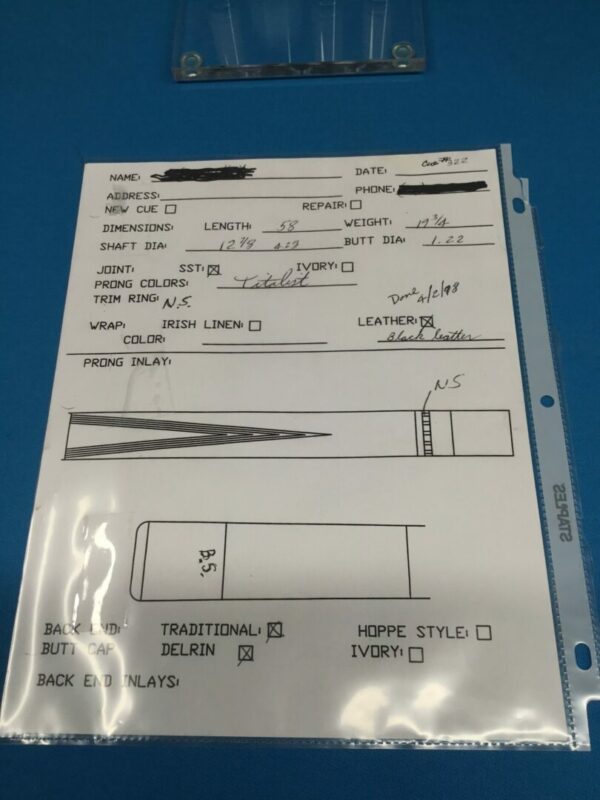 Cue # 322
NAME: DATE:
ADDRESS: PHONE:
NEW CUE REPAIR:
DIMENSIONS: LENGTH: 58 WEIGHT: 19 3/4
SHAFT DIA: 12 7/8 BUTT DIA: 1.22
JOINT: SST: IVORY:
PRONG COLORS: Titalist
TRIM RING: N.S. Done 4/2/98
WRAP: IRISH LINEN: LEATHER:
COLOR: Black leather
PRONG INLAY:
NS
B.S.
BACK END: TRADITIONAL: HOPPE STYLE:
BUTT CAP DELRIN IVORY:
BACK END INLAYS:
STAPLES